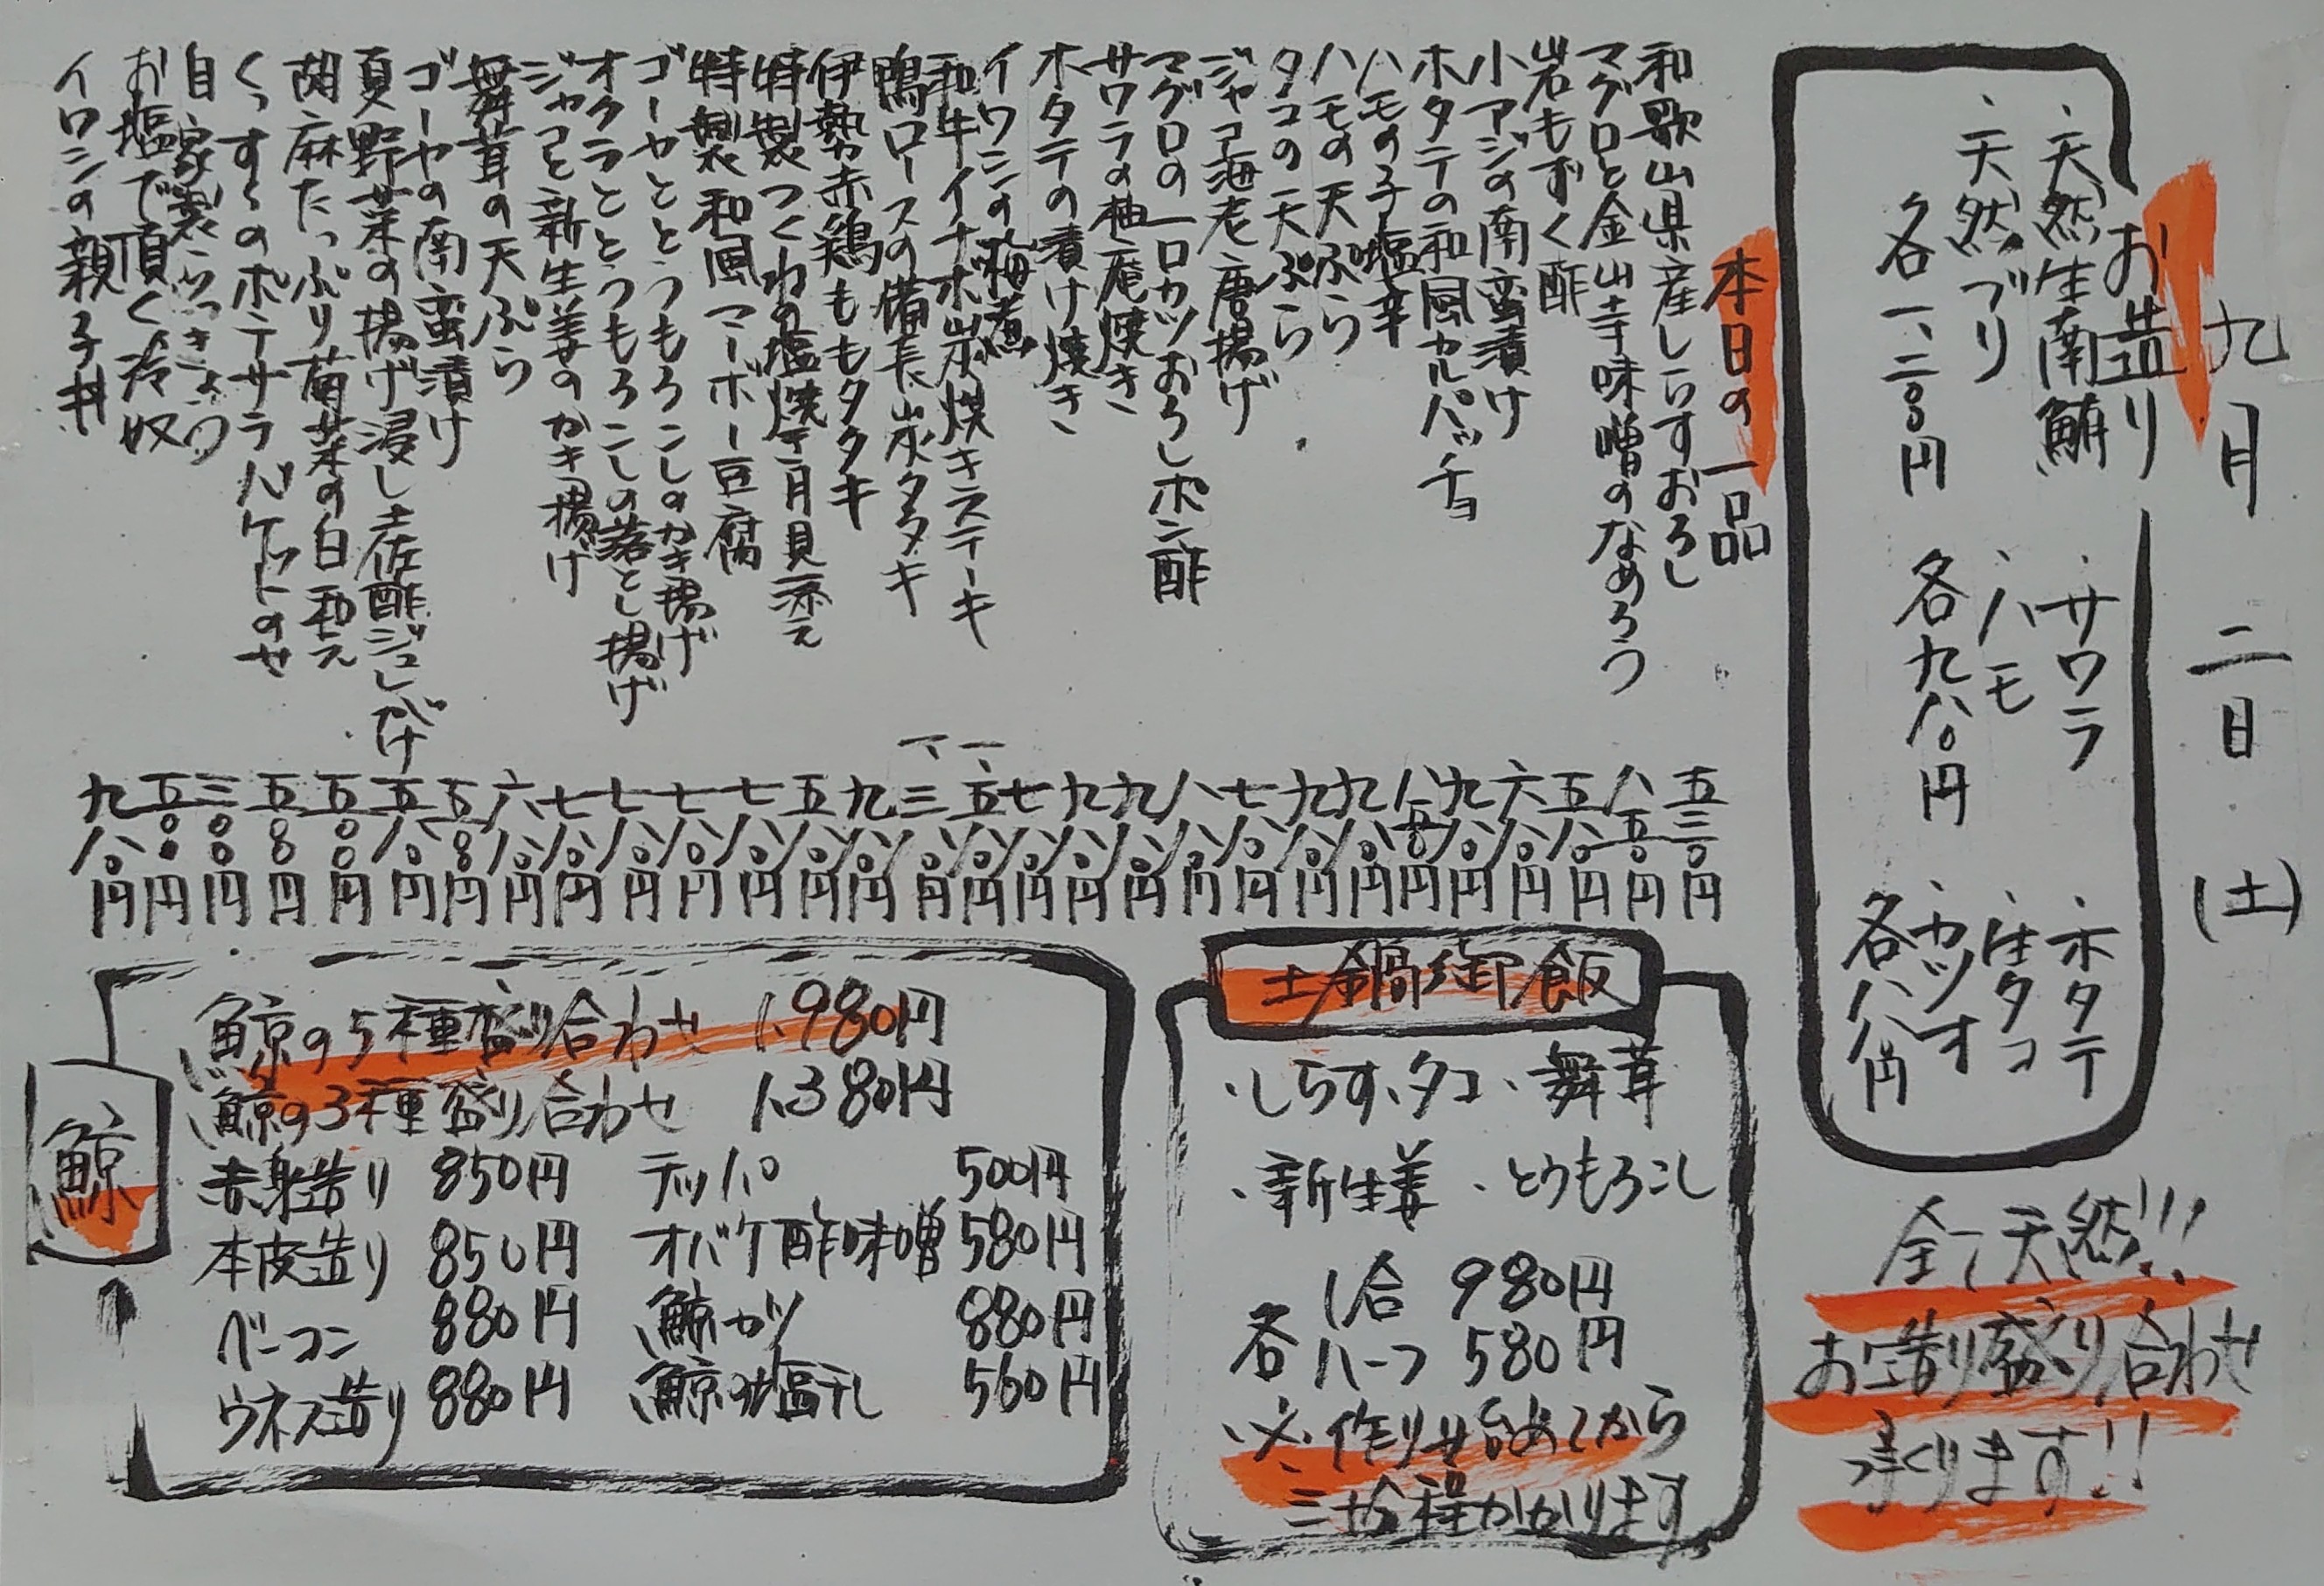 九月 二日 (土)
お造り
・天然生南鮪
・天然ブリ
各一、二〇〇円
・サワラ
・ハモ
各九八〇円
・ホタテ
・生タコ
・カツオ
各八八〇円
全て天然!!!
お造り盛り合わせ
承ります!!
本日の一品
和歌山県産しらすおろし 五三〇円
マグロと金山寺味噌のなめろう 八五〇円
岩もずく酢 五八〇円
小アジの南蛮漬け 六八〇円
ホタテの和風カルパッチョ 九八〇円
ハモの子塩辛 八五〇円
ハモの天ぷら 九八〇円
タコの天ぷら 九八〇円
ジャコ海老唐揚げ 七八〇円
マグロの一口カツおろしポン酢 八八〇円
サワラの柚庵焼き 九八〇円
ホタテの漬け焼き 九八〇円
イワシの梅煮 七八〇円
和牛イチボ炭焼きステーキ 一、五八〇円
鴨ロースの備長炭タタキ 一、三八〇円
伊勢赤鶏ももタタキ 九八〇円
特製つくねの塩焼き月見添え 五八〇円
特製和風マーボー豆腐 七八〇円
ゴーヤととうもろこしのかき揚げ 七八〇円
オクラととうもろこしの落とし揚げ 七八〇円
ジャコと新生姜のかき揚げ 七八〇円
舞茸の天ぷら 六八〇円
ゴーヤの南蛮漬け 五〇〇円
夏野菜の揚げ浸し土佐酢ジュレがけ 五八〇円
胡麻たっぷり菊菜の白和え 五〇〇円
くっすくのポテサラバケットのせ 五〇〇円
自家製らっきょう 三〇〇円
お塩で頂く冷奴 五〇〇円
イワシの親子丼 九八〇円
土鍋御飯
・しらす・タコ・舞茸
・新生姜・とうもろこし
各 1合 980円
ハーフ 580円
※作り始めてから
三十分程かかります
鯨
・鯨の5種盛り合わせ 1,980円
・鯨の3種盛り合わせ 1,380円
赤身造り 850円 テッパ 500円
本皮造り 850円 オバケ酢味噌 580円
ベーコン 880円 鯨カツ 880円
ウネス造り 880円 鯨の塩干し 560円